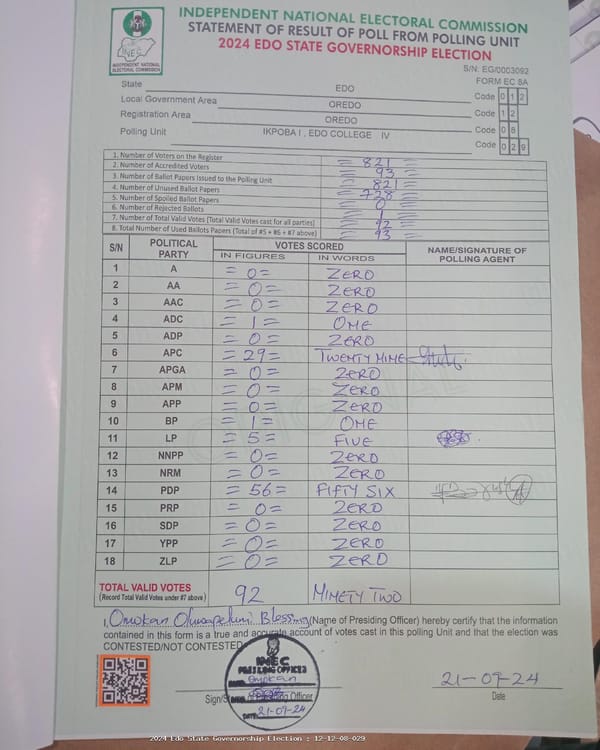 INDEPENDENT NATIONAL ELECTORAL COMMISSION
STATEMENT OF RESULT OF POLL FROM POLLING UNIT
2024 EDO STATE GOVERNORSHIP ELECTION
INEC
INDEPENDENT NATIONAL
ELECTORAL COMMISSION
S/N: EG/0003092
FORM EC 8A
State EDO Code 0 1 2
Local Government Area OREDO Code 1 2
Registration Area OREDO Code 0 8
Polling Unit IKPOBA I , EDO COLLEGE IV Code 0 2 9
1. Number of Voters on the Register = 821 =
2. Number of Accredited Voters = 93 =
3. Number of Ballot Papers Issued to the Polling Unit = 821 =
4. Number of Unused Ballot Papers = 728 =
5. Number of Spoiled Ballot Papers = 0 =
6. Number of Rejected Ballots = 1 =
7. Number of Total Valid Votes (Total Valid Votes cast for all parties) = 92 =
8. Total Number of Used Ballots Papers (Total of #5 + #6 + #7 above) = 93 =
S/N POLITICAL PARTY VOTES SCORED NAME/SIGNATURE OF POLLING AGENT
IN FIGURES IN WORDS
1 A = 0 = ZERO
2 AA = 0 = ZERO
3 AAC = 0 = ZERO
4 ADC = 1 = ONE
5 ADP = 0 = ZERO
6 APC = 29 = TWENTY NINE
7 APGA = 0 = ZERO
8 APM = 0 = ZERO
9 APP = 0 = ZERO
10 BP = 1 = ONE
11 LP = 5 = FIVE
12 NNPP = 0 = ZERO
13 NRM = 0 = ZERO
14 PDP = 56 = FIFTY SIX
15 PRP = 0 = ZERO
16 SDP = 0 = ZERO
17 YPP = 0 = ZERO
18 ZLP = 0 = ZERO
TOTAL VALID VOTES 92 NINETY TWO
(Record Total Valid Votes under #7 above)
I, Omokan Oluwapelumi Blessing (Name of Presiding Officer) hereby certify that the information
contained in this form is a true and accurate account of votes cast in this polling Unit and that the election was
CONTESTED/NOT CONTESTED
INEC
PRESIDING OFFICER
Omokan
DATE: 21-09-24
Officer
21-09-24
Date
2024 Edo State Governorship Election : 12-12-08-029